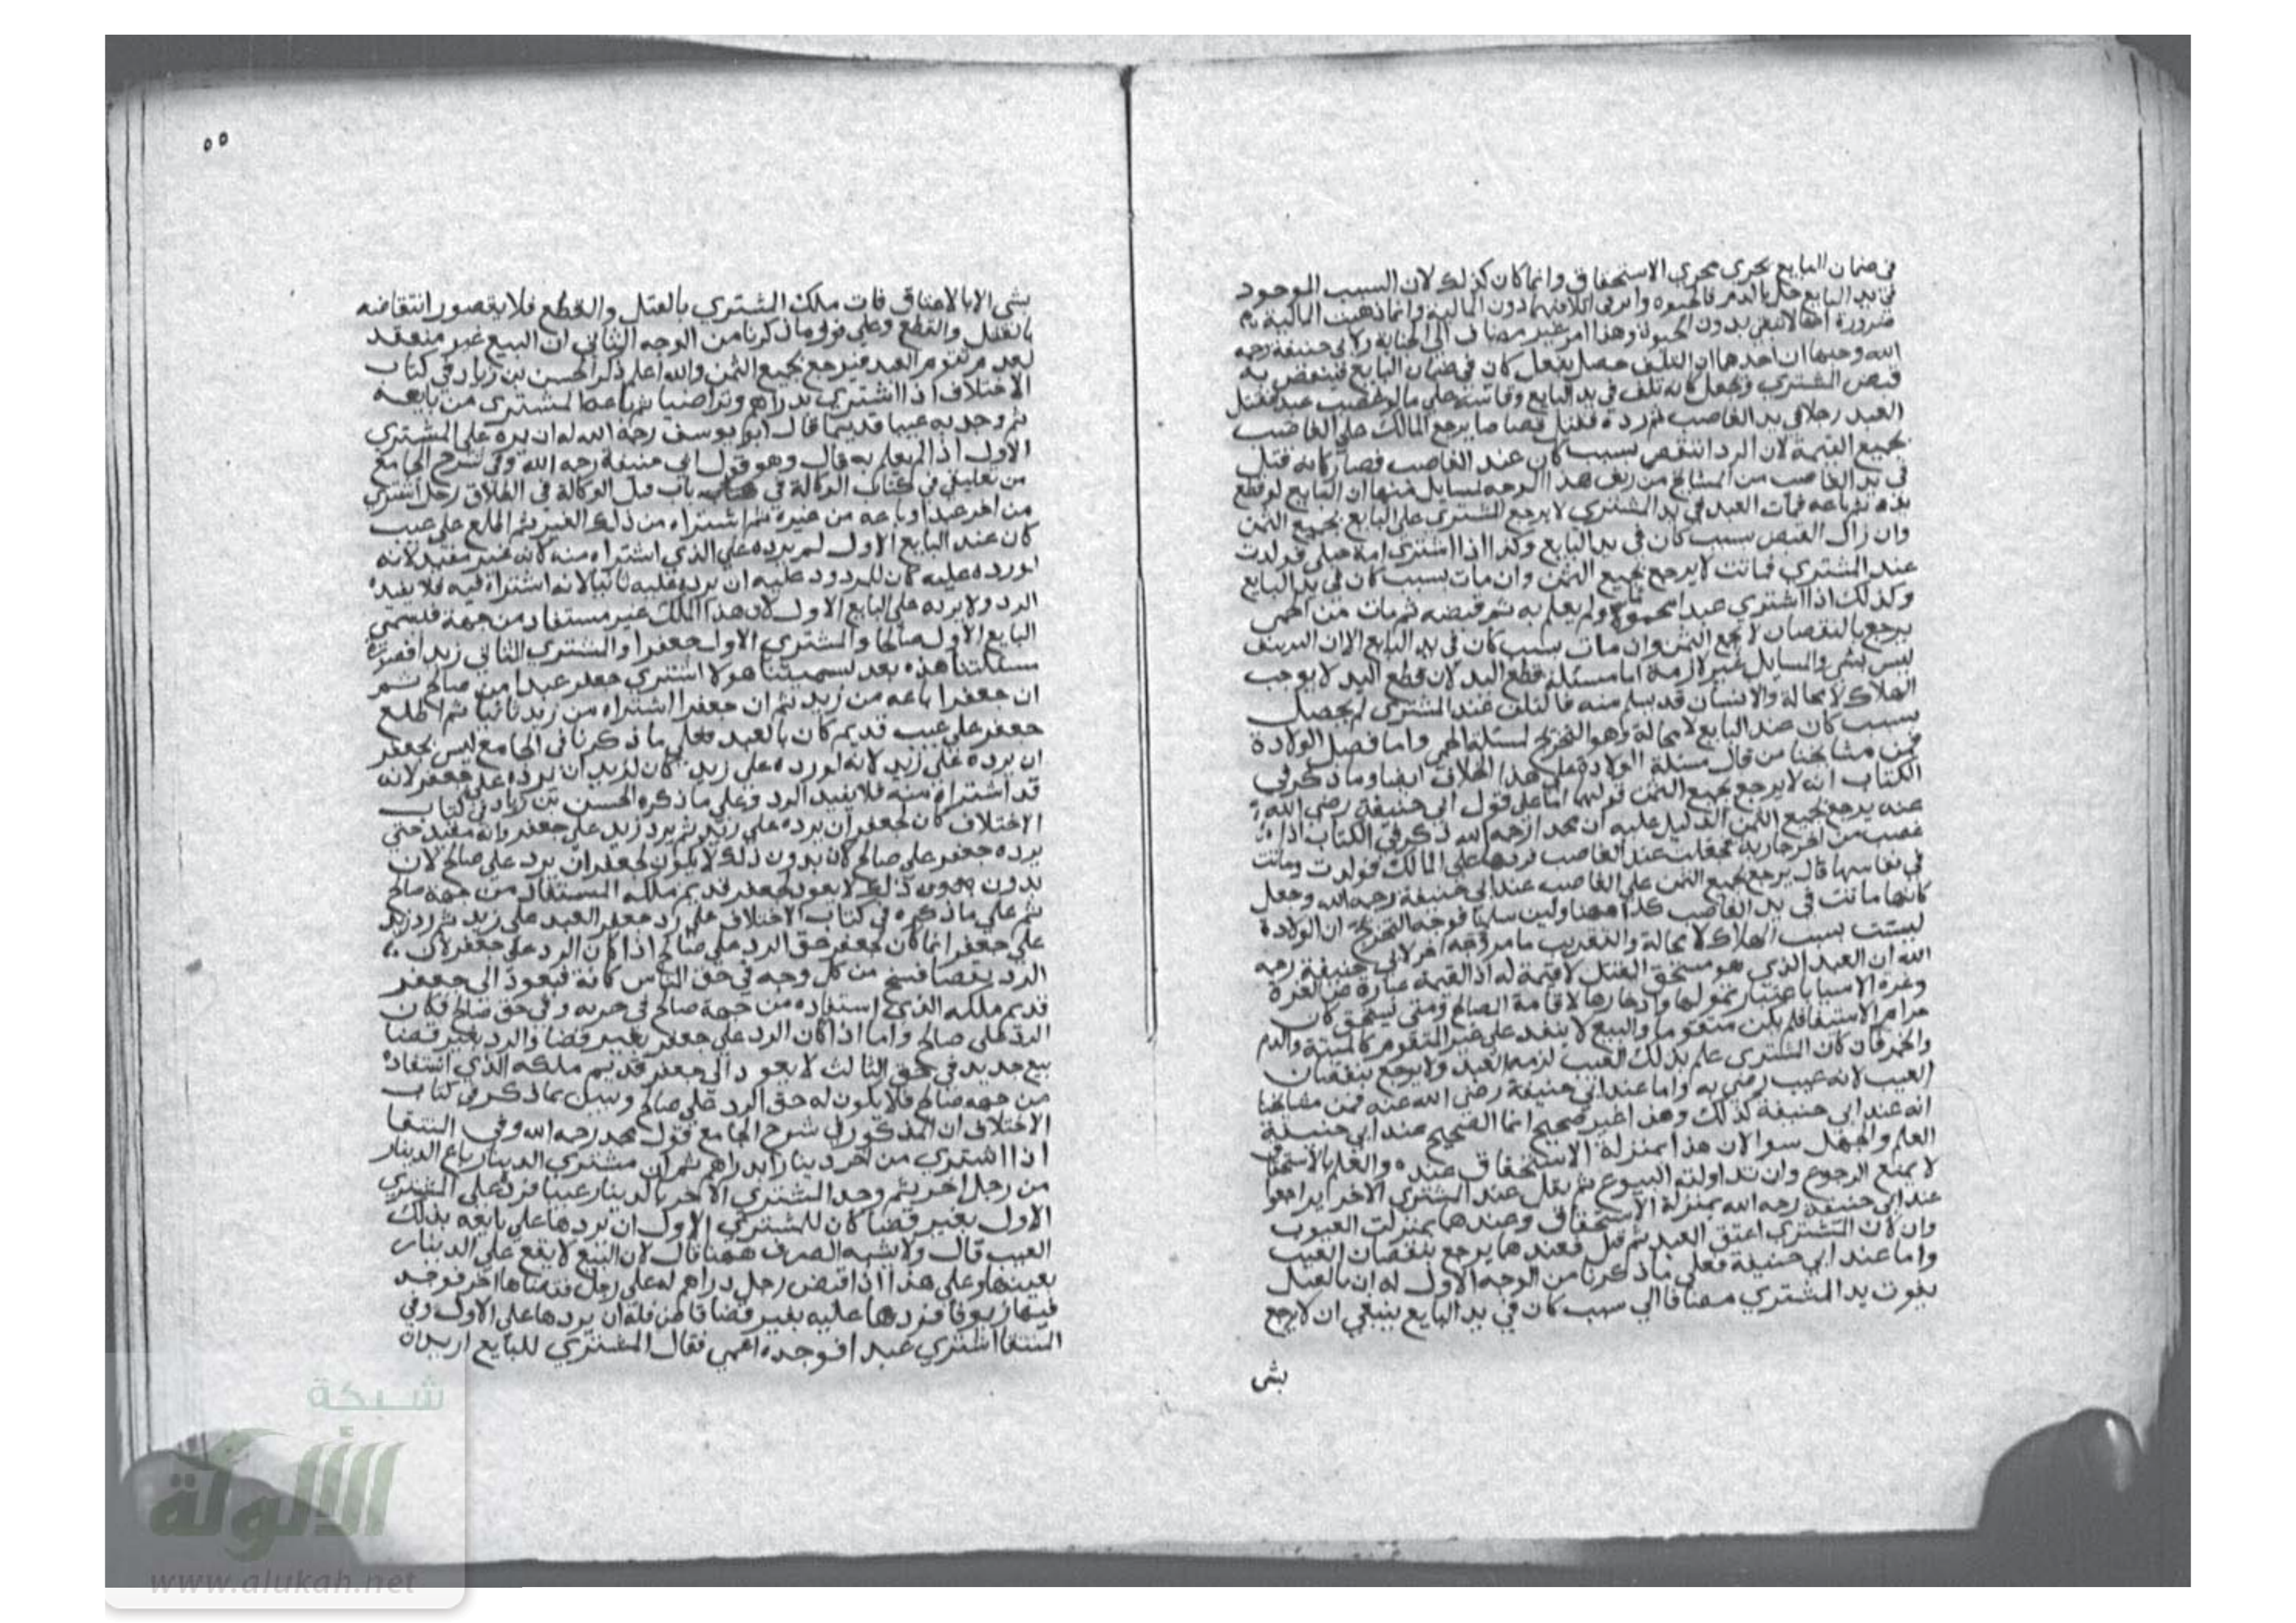 في ضمان البايع يجري مجري الاستحقاق وانما كان كذلك لان السبب الموجود
في يد البايع حل بالدم فالحيوه وا في اتلافهما دون المالية وانما ذهبت المالية
ضرورة انها لا تبقى بدون الحيوة وهذا امر غير مضاف الى الجناية ولابي حنيفة رحمه
الله وجهان احدها ان التلف حصل بفعل كان في ضمان البايع فينتقض به
قبض المشتري ويجعل كانه تلف في يد البايع على ما لو غصب عبد فقتل
العبد رجلا في يد الغاصب ثم رده فقتل قصاصا يرجع المالك على الغاصب
بجميع القيمة لان الرد انتقض بسبب كان عند الغاصب فصار كانه قتل
في يد الغاصب من المشايخ من زيف هذا الوجه لمسايل منها ان البايع لو قطع
يده ثم باعه فمات العبد في يد المشتري لا يرجع المشتري على البايع بجميع الثمن
وان زال القبض بسبب كان في يد البايع وكذا اذا اشتري امة حبلى فولدت
عند المشتري فماتت لا يرجع بجميع الثمن وان مات بسبب كان في يد البايع
وكذلك اذا اشتري عبدا محموما ولم يعلم به ثم قبضه ثم مات من الحمى
يرجع بالنقصان لا بجميع الثمن وان مات بسبب كان في يد البايع الا ان التزييف
ليس بشي والمسايل غير لازمة اما مسئلة قطع اليد لان قطع اليد لا يوجب
الهلاك لا محالة والانسان قد يسلم منه فالتلف عند المشتري لم يحصل
بسبب كان عند البايع لا محالة وهو التخريج لمسئلة الحمى واما فصل الولادة
فمن مشايخنا من قال مسئلة الولادة على هذا الخلاف ايضا وما ذكر في
الكتاب انه لا يرجع بجميع الثمن قولهما اما على قول ابي حنيفة رضي الله
عنه يرجع بجميع الثمن الدليل عليه ان محمدا رحمه الله ذكر في الكتاب اذا
غصب من اخر جارية فحبلت عند الغاصب فردها على المالك فولدت وماتت
في نفاسها قال يرجع بجميع الثمن على الغاصب عند ابي حنيفة رحمه الله وجعل
كانها ماتت في يد الغاصب كذا ههنا ولين سلمنا فوجه التخريج ان الولادة
ليست بسبب الهلاك لا محالة والتقريب ما مر وجه اخر لابي حنيفة رحمه
الله ان العبد الذي هو مستحق القتل لا قيمة له اذ القيمة عبارة عن العزة
وعزة الاشيا باعتبار تمولها وادخارها لاقامة المصالح ومتى يستحق كان
حرام الاستبقا فلم يكن متقوما والبيع لا ينعقد على غير المتقوم كالميتة والدم
والخمر فان كان المشتري علم بذلك العيب لزمه العبد ولا يرجع بنقصان
العيب لانه عيب رضي به واما عند ابي حنيفة رضي الله عنه فمن مشايخنا
انه عند ابي حنيفة كذلك وهذا غير صحيح انما الصحيح عند ابي حنيفة
العلم والجهل سوا لان هذا بمنزلة الاستحقاق عنده والعلم بالاستحقاق
لا يمنع الرجوع وان تداولته البيوع ثم يقتل عند المشتري الاخر يراجعوا
عند ابي حنيفة رحمه الله بمنزلة الاستحقاق وعندهما بمنزلت العيوب
وان كان المشتري اعتق العبد ثم قتل فعندهما يرجع بنقصان العيب
واما عند ابي حنيفة فعلى ما ذكرنا من الوجه الاول له ان بالقتل
يفوت يد المشتري مضافا الي سبب كان في يد البايع ينبغي ان لا يرجع
بشي
٥٥
بشي الا بالاعتاق فات ملك المشتري بالقتل والقطع فلا يقصور انتقاضه
بالقتل والقطع وعلى قوله ما ذكرنا من الوجه الثاني ان البيع غير منعقد
لعدم تقوم العبد فيرجع بجميع الثمن والله اعلم ذكر الحسن بن زياد في كتاب
الاختلاف اذا اشتري بدراهم وتراضيا ثم باعها المشتري من بايعه
ثم وجد به عيبا قديما قال ابو يوسف رحمه الله له ان يرده على المشتري
الاول اذا لم يعلم به قال وهو قول ابي حنيفة رحمه الله وفي شرح الجامع
من تعليقي في كتاب الوكالة في باب قبل الوكالة في الطلاق رجل اشتري
من اخر عبدا وباعه من غيره ثم اشتراه من ذلك الغير ثم اطلع على عيب
كان عند البايع الاول لم يرده على الذي اشتراه منه كانه غير مفيد لانه
لو رده عليه كان للمردود عليه ان يرده عليه ثانيا لانه اشتراه فيه فلا يفيد
الرد ولا يرده على البايع الاول لان هذا الملك غير مستفاد من جهة فلسمي
البايع الاول صالحا والمشتري الاول جعفرا والمشتري الثاني زيدا فصورة
مسئلتنا هذه بعد تسميتنا هولا اشتري جعفر عبدا من صالح ثم
ان جعفرا باعه من زيد ثم ان جعفرا اشتراه من زيد ثانيا ثم اطلع
جعفر على عيب قديم كان بالعبد فعلى ما ذكرنا في الجامع ليس لجعفر
ان يرده على زيد لانه لو رده على زيد كان لزيد ان يرده على جعفر لانه
قد اشتراه منه فلا يفيد الرد وعلى ما ذكره الحسن بن زياد في كتاب
الاختلاف كان لجعفر ان يرده على زيد ثم يرد زيد على جعفر وانه مفيد حتى
يرده جعفر على صالح لان بدون ذلك لا يكون لجعفر ان يرد على صالح لان
بدون ذلك لا يعود لجعفر قديم ملكه المستفاد من جهة صالح
ثم على ما ذكره في كتاب الاختلاف على رد جعفر العبد على زيد ثم رد زيد
على جعفر انما كان لجعفر حق الرد على صالح اذا كان الرد على جعفر لان
الرد بقضا فسخ من كل وجه في حق الناس كافة فيعود الى جعفر
قديم ملكه الذي استفاده من جهة صالح في حربه وفي حق صالح فكان
الرد على صالح واما اذا كان الرد على جعفر بغير قضا والرد بغير قضا
بيع جديد في حق الثالث لا يعود الى جعفر قديم ملكه الذي استفاده
من جهة صالح فلا يكون له حق الرد على صالح وسبيل ما ذكر في كتاب
الاختلاف ان المذكور في شرح الجامع قول محمد رحمه الله وفي المنتقا
اذا اشتري من اخر دينارا بدراهم ثم ان مشتري الدينار باع الدينار
من رجل اخر ثم وجد المشتري الاخر بالدينار عيبا فرده على المشتري
الاول بغير قضا كان للمشتري الاول ان يردها على بايعه بذلك
العيب قال ولا يشبه الصرف ههنا قال لان البيع لا يقع على الدينار
بعينها وعلى هذا اذا قبض رجل دراهم له على رجل اخر فوجد
فيها زيوفا فردها عليه بغير قضا قاض فله ان يردها على الاول وفي
المنتقا اشتري عبدا فوجده اعمى فقال المشتري للبايع اريد ان
شبكة
الألوكة
www.alukah.net